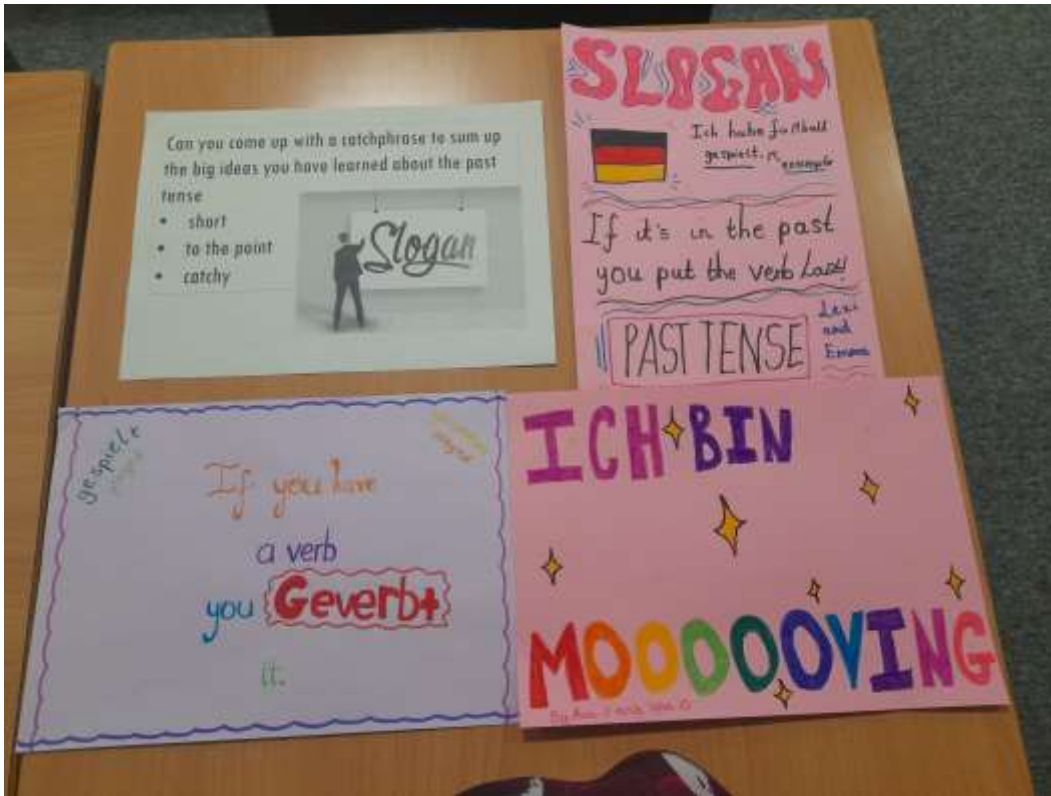 Can you come up with a catchphrase to sum up
the big ideas you have learned about the past
tense
• short
• to the point
• catchy
Slogan
SLOGAN
Ich habe fußball
gespielt. example
If it's in the past
you put the verb last!
PAST TENSE
Lexi
and
Emma
gespielt
If you have
a verb
you Geverbt
it.
ICH BIN
MOOOOOOVING
By
and